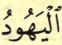 اَلْيَهُودُ